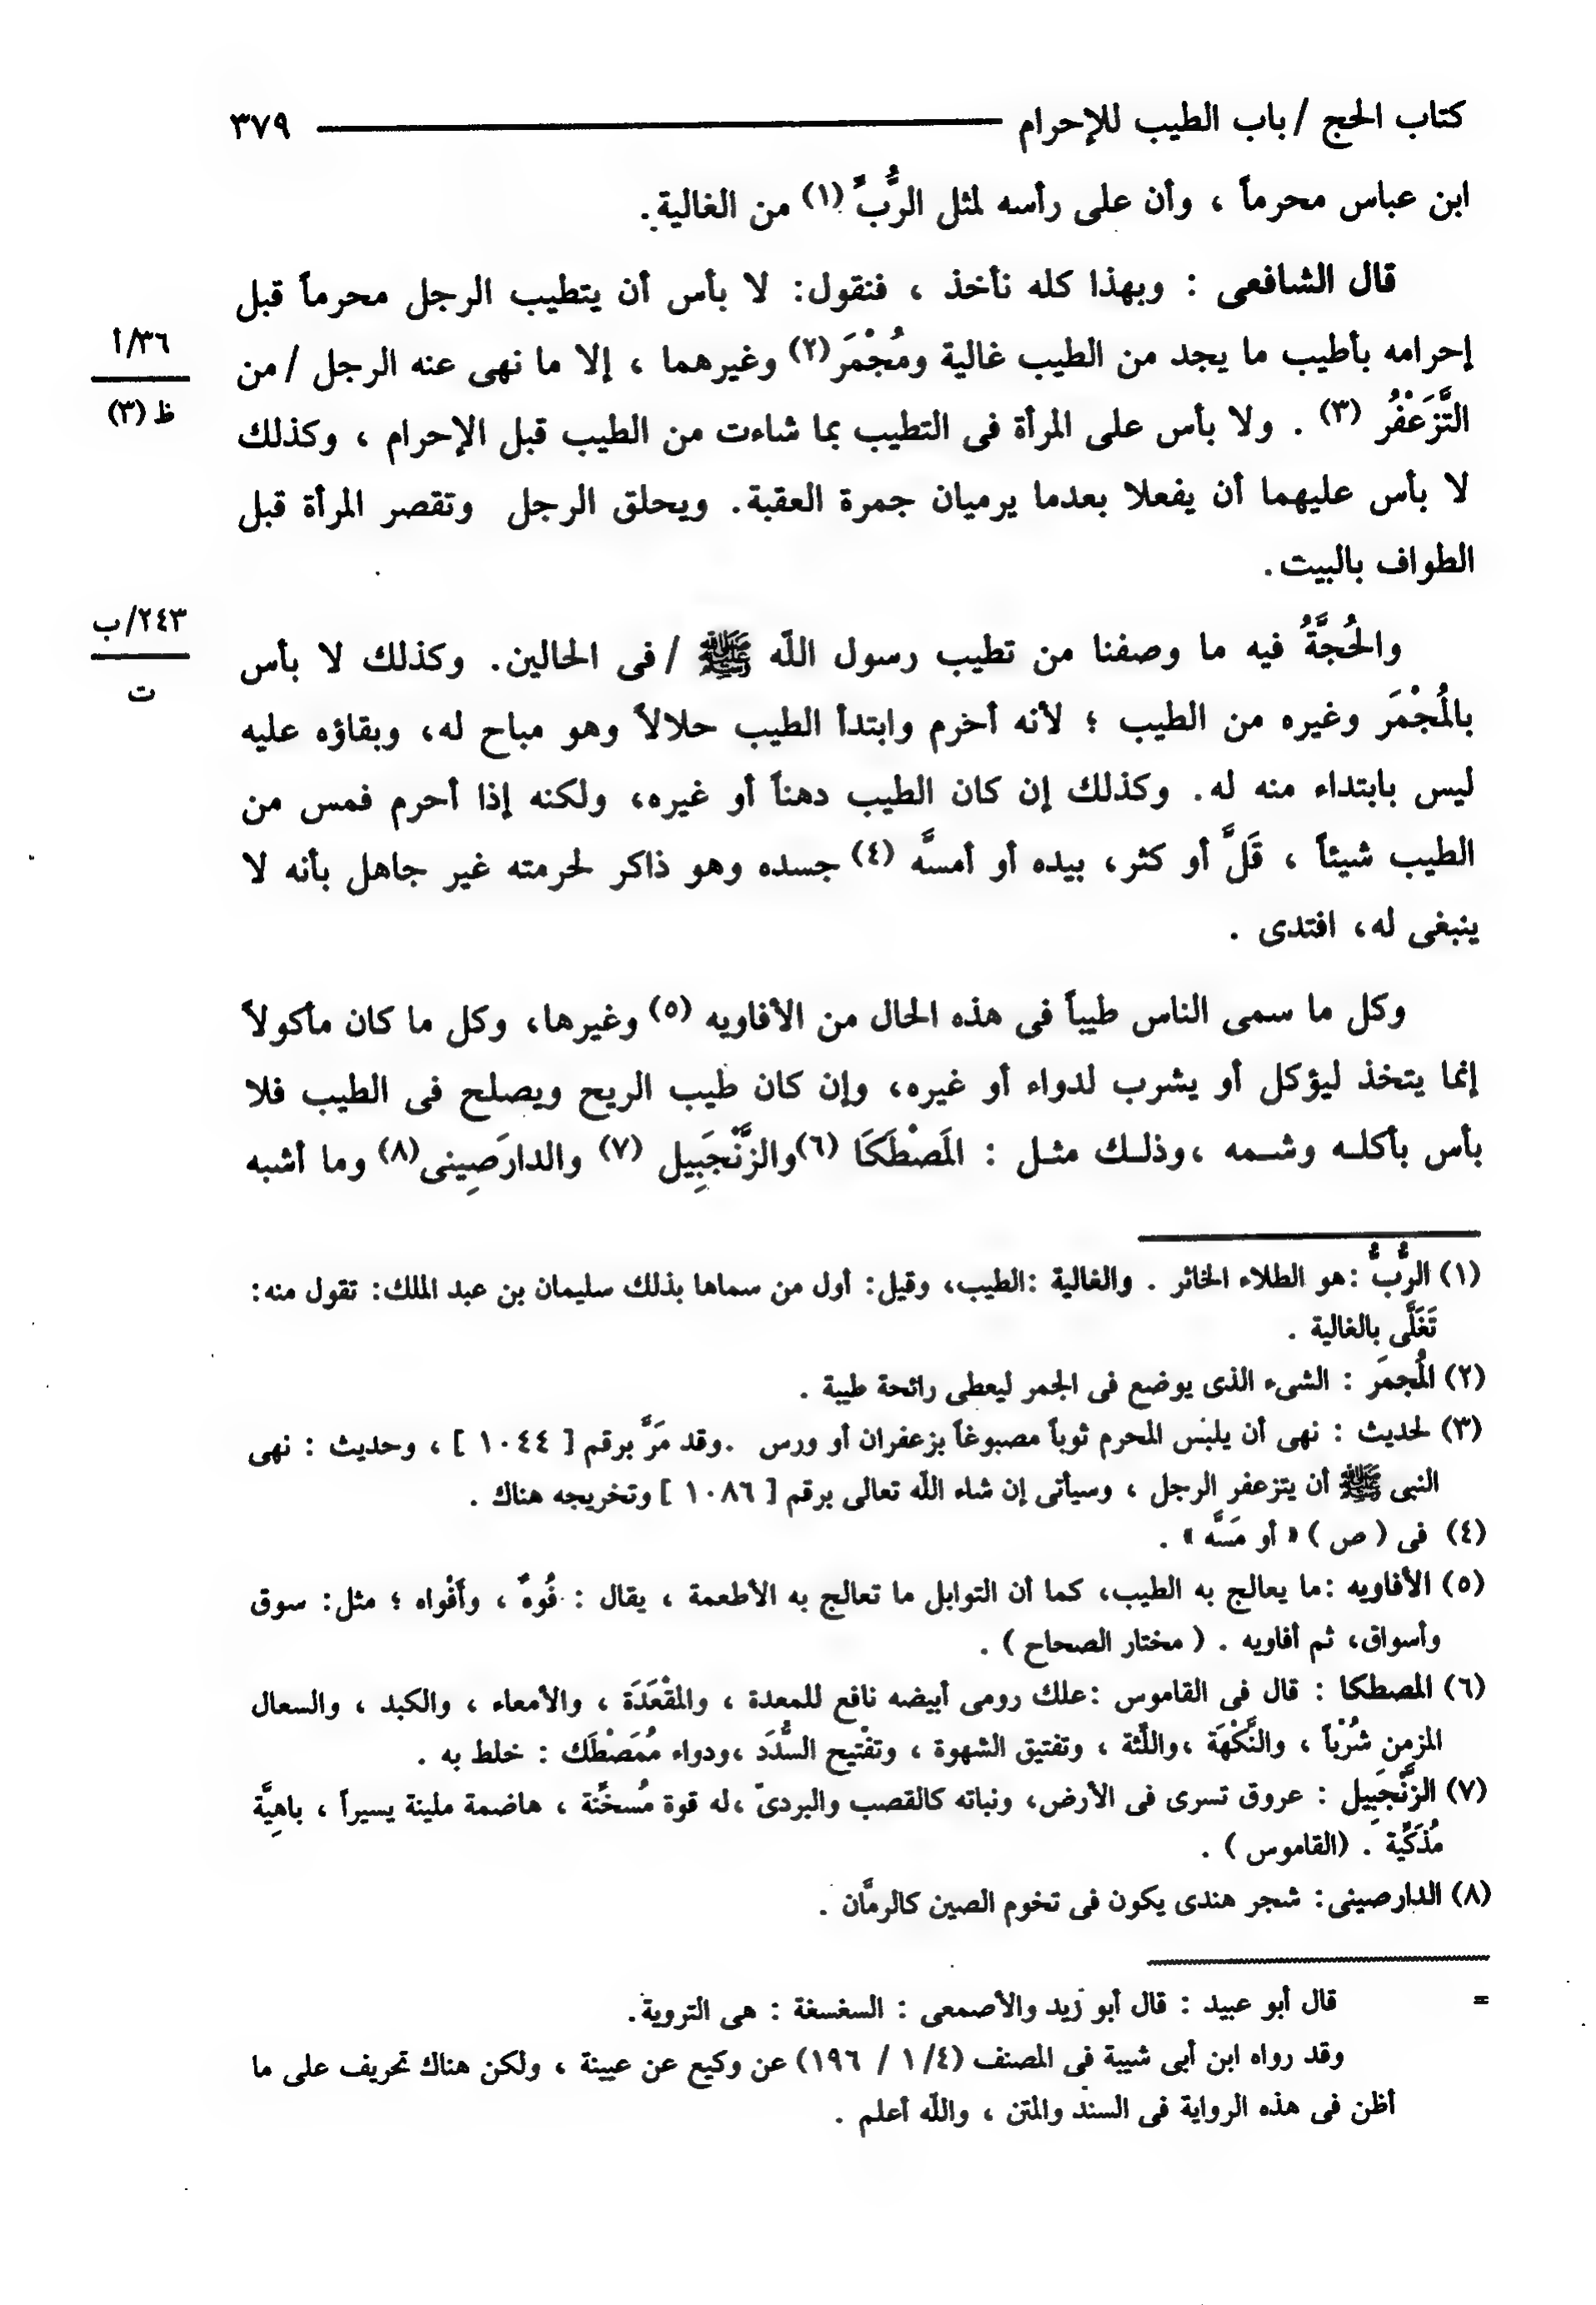 كتاب الحج / باب الطيب للإحرام ٣٧٩
ابن عباس محرماً ، وأن على رأسه لمثل الرُّبِّ (١) من الغالية.
قال الشافعى : وبهذا كله نأخذ ، فنقول: لا بأس أن يتطيب الرجل محرماً قبل
إحرامه بأطيب ما يجد من الطيب غالية ومُجْمَر(٢) وغيرهما ، إلا ما نهى عنه الرجل / من
التَّزَعْفُرِ (٣) . ولا بأس على المرأة فى التطيب بما شاءت من الطيب قبل الإحرام ، وكذلك
لا بأس عليهما أن يفعلا بعدما يرميان جمرة العقبة. ويحلق الرجل وتقصر المرأة قبل
الطواف بالبيت.
٣٦/أ
ظ (٣)
والحُجَّةُ فيه ما وصفنا من تطيب رسول اللّه ﷺ / فى الحالين. وكذلك لا بأس
بالمُجْمَر وغيره من الطيب ؛ لأنه أخرم وابتدأ الطيب حلالاً وهو مباح له، وبقاؤه عليه
ليس بابتداء منه له. وكذلك إن كان الطيب دهناً أو غيره، ولكنه إذا أحرم فمس من
الطيب شيئاً ، قَلَّ أو كثر، بيده أو أمسَّه (٤) جسده وهو ذاكر لحرمته غير جاهل بأنه لا
ينبغى له، افتدى .
٢٤٣/ب
ت
وكل ما سمى الناس طيباً فى هذه الحال من الأفاويه (٥) وغيرها، وكل ما كان مأكولاً
إنما يتخذ ليؤكل أو يشرب لدواء أو غيره، وإن كان طيب الريح ويصلح فى الطيب فلا
بأس بأكله وشمه ،وذلك مثل : المَصْطَكَا (٦)والزَّنْجَبِيل (٧) والدارَصِينى(٨) وما أشبه
(١) الرُّبُّ :هو الطلاء الخاثر . والغالية :الطيب، وقيل: أول من سماها بذلك سليمان بن عبد الملك: تقول منه:
تَغَلَّى بالغالية .
(٢) المُجمَر : الشىء الذى يوضع فى الجمر ليعطى رائحة طيبة .
(٣) لحديث : نهى أن يلبس المحرم ثوباً مصبوغاً بزعفران أو ورس .وقد مَرَّ برقم [ ١٠٤٤ ] ، وحديث : نهى
النبى ﷺ أن يتزعفر الرجل ، وسيأتى إن شاء اللّه تعالى برقم [ ١٠٨٦ ] وتخريجه هناك .
(٤) فى ( ص ) « أو مَسَّه » .
(٥) الأفاويه :ما يعالج به الطيب، كما أن التوابل ما تعالج به الأطعمة ، يقال : فُوهٌ ، وأفْواه ؛ مثل: سوق
وأسواق، ثم أفاويه . ( مختار الصحاح ) .
(٦) المصطكا : قال فى القاموس :علك رومى أبيضه نافع للمعدة ، والمقْعَدَة ، والأمعاء ، والكبد ، والسعال
المزمن شُرْباً ، والنَّكْهَة ،واللِّثة ، وتفتيق الشهوة ، وتفْتيح السُّدَد ،ودواء مُمَصْطَك : خلط به .
(٧) الزَّنْجَبِيل : عروق تسرى فى الأرض، ونباته كالقصب والبردىّ ،له قوة مُسخِّنة ، هاضمة ملينة يسيراً ، باهِيَّة
مُذكِّية . (القاموس ) .
(٨) الدارصينى: شجر هندى يكون فى تخوم الصين كالرمَّان .
= قال أبو عبيد : قال أبو زيد والأصمعى : السغسغة : هى التروية.
وقد رواه ابن أبى شيبة فى المصنف (٤/١ / ١٩٦) عن وكيع عن عيينة ، ولكن هناك تحريف على ما
أظن فى هذه الرواية فى السند والمتن ، واللّه أعلم .